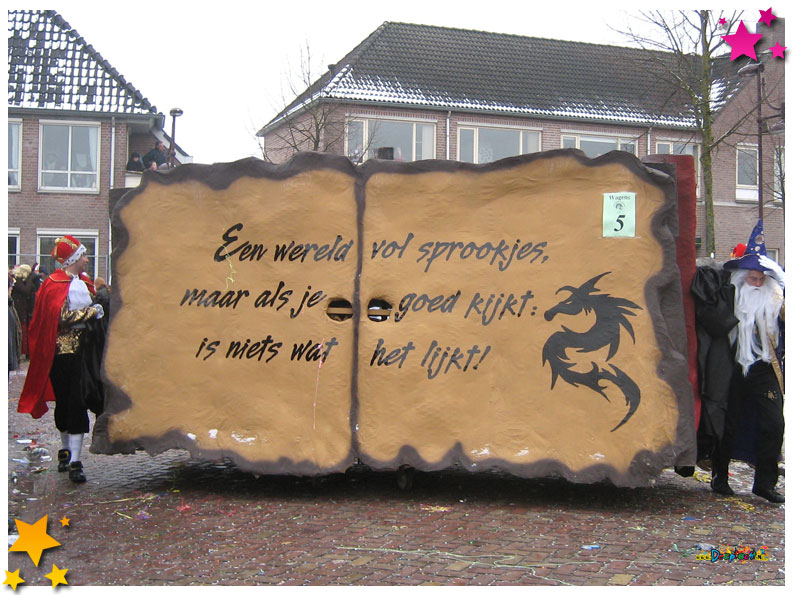 Een wereld vol sprookjes,
maar als je goed kijkt:
is niets wat het lijkt!
Wagens
5